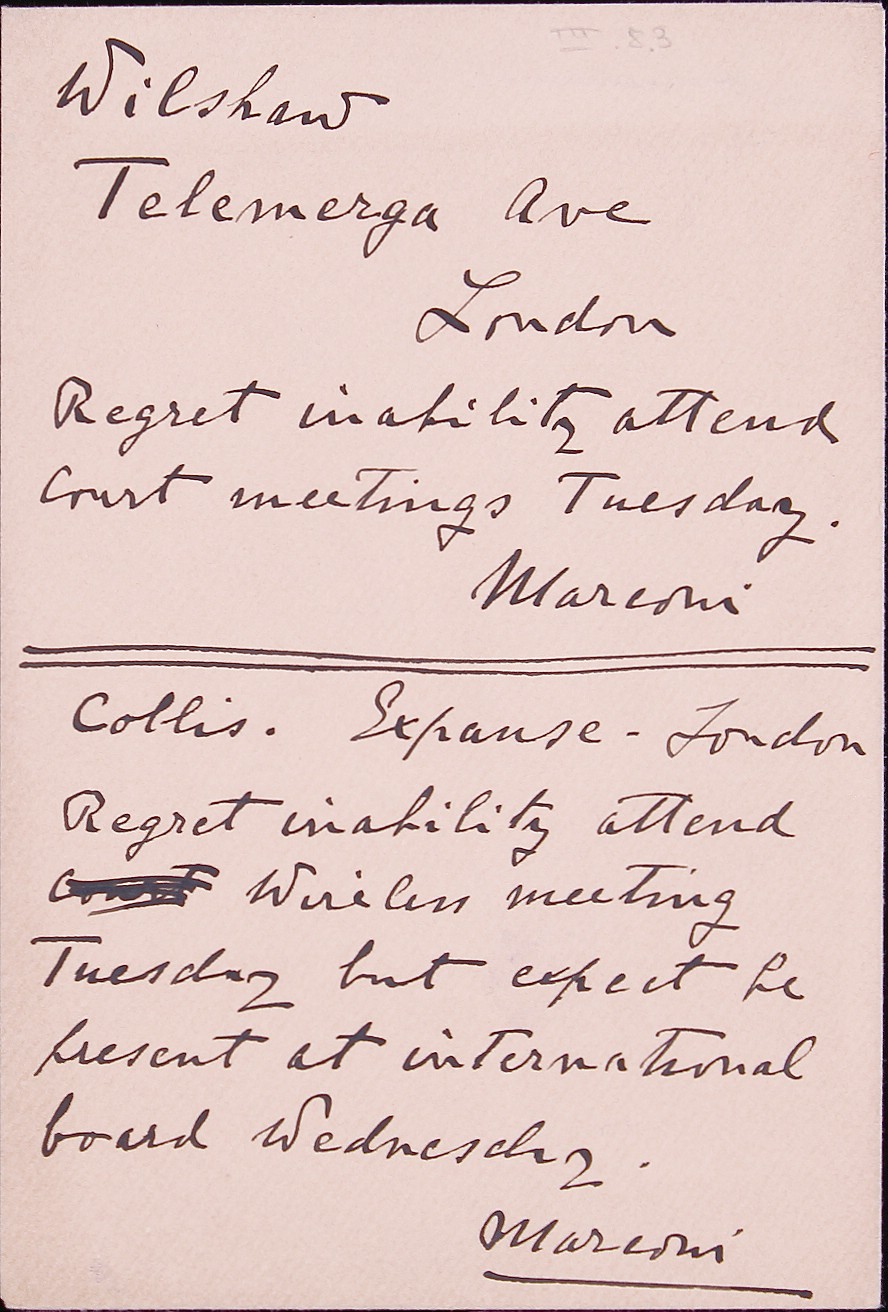 III . 83
Wilshaw
Telemerga Ave
London
Regret inability attend
Court meetings Tuesday.
Marconi
Collis. Expanse - London
Regret inability attend
Court Wireless meeting
Tuesday but expect be
present at international
board Wednesday.
Marconi